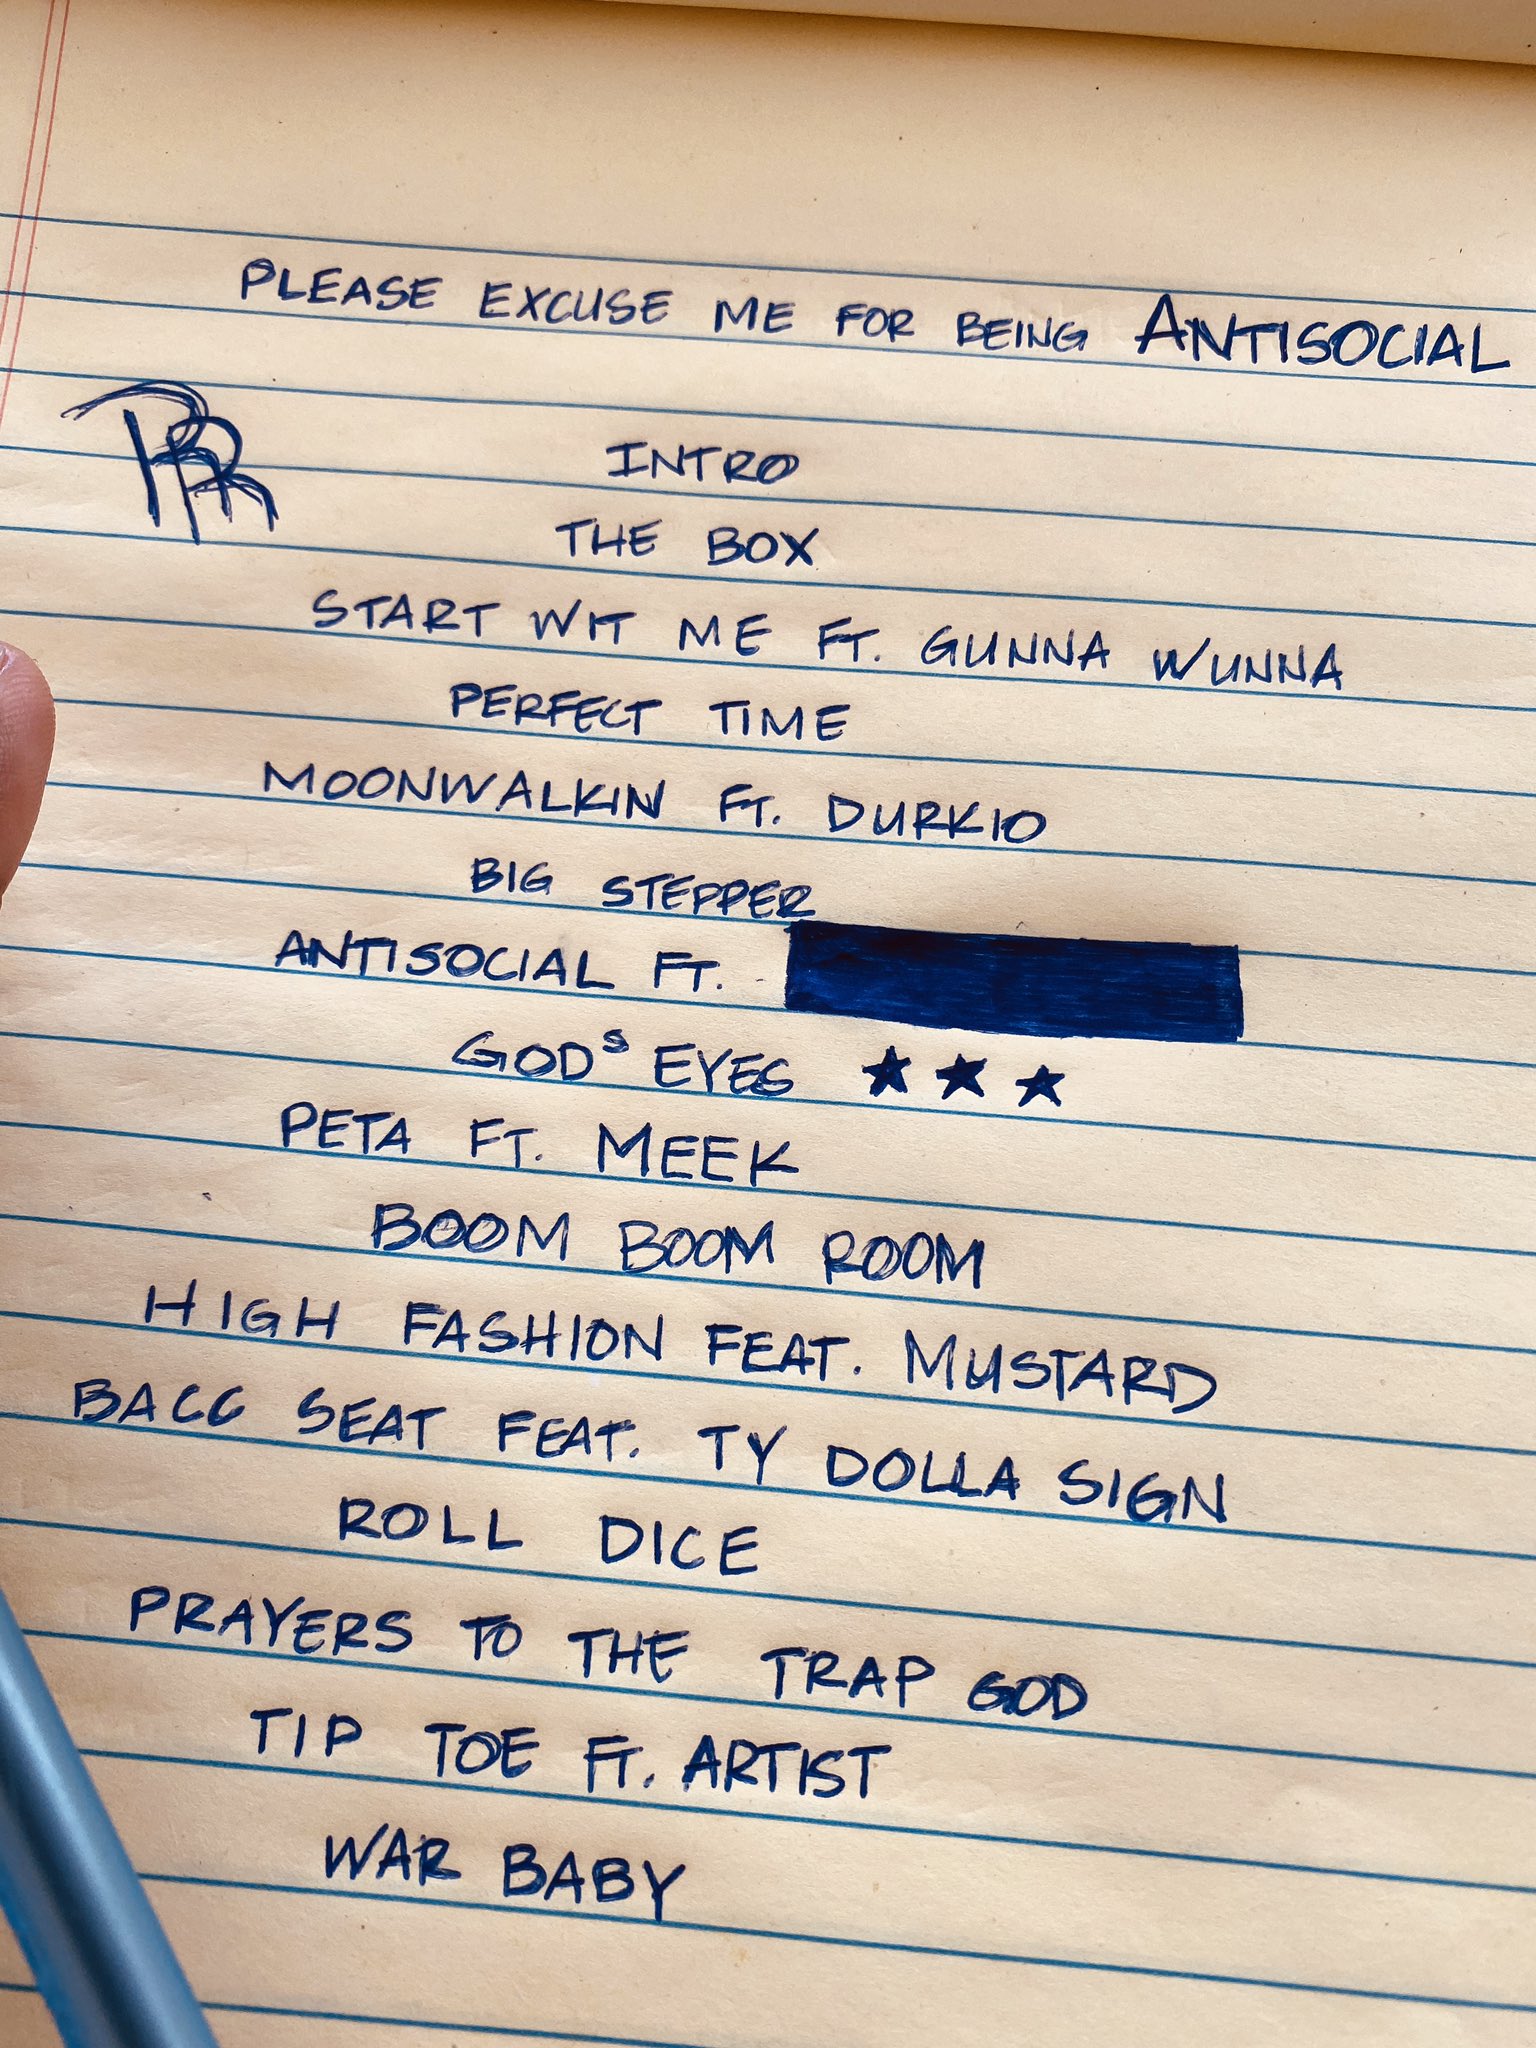 PLEASE EXCUSE ME FOR BEING ANTISOCIAL
RR
INTRO
THE BOX
START WIT ME FT. GUNNA WUNNA
PERFECT TIME
MOONWALKIN FT. DURKIO
BIG STEPPER
ANTISOCIAL FT.
GODS EYES ★ ★ ★
PETA FT. MEEK
BOOM BOOM ROOM
HIGH FASHION FEAT. MUSTARD
BACC SEAT FEAT. TY DOLLA SIGN
ROLL DICE
PRAYERS TO THE TRAP GOD
TIP TOE FT. ARTIST
WAR BABY